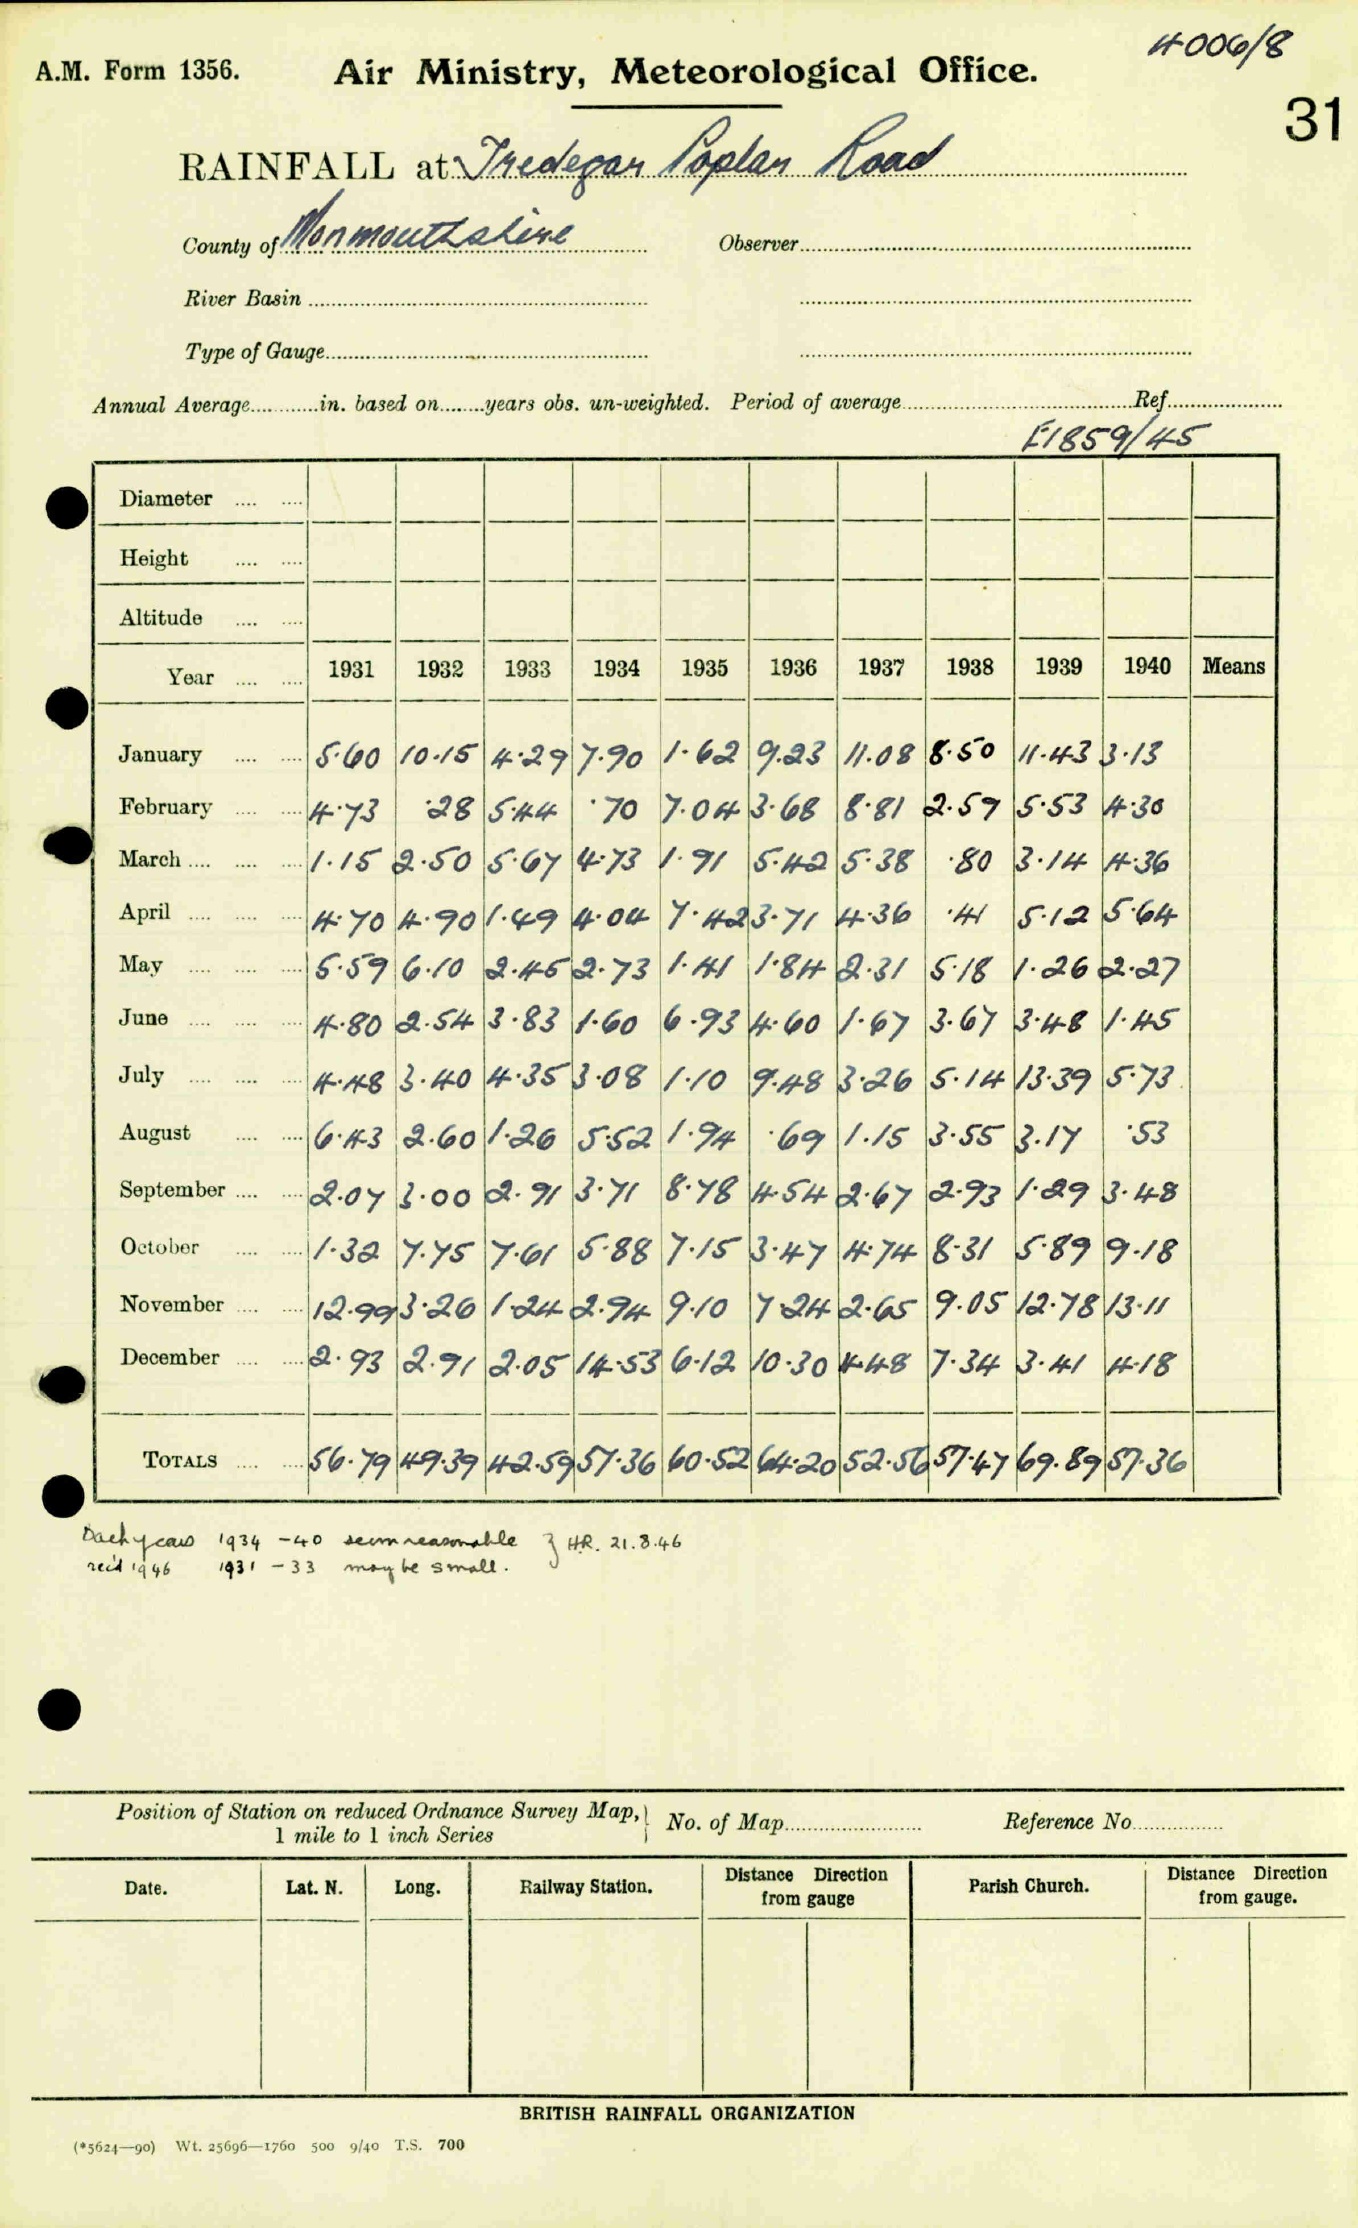 4006/8
A.M. Form 1356. Air Ministry, Meteorological Office.
31
RAINFALL at Tredegar Poplar Road
County of Monmouthshire Observer
River Basin
Type of Gauge
Annual Average in. based on years obs. un-weighted. Period of average Ref
E1859/45
Diameter
Height
Altitude
Year 1931 1932 1933 1934 1935 1936 1937 1938 1939 1940 Means
January 5.60 10.15 4.29 7.90 1.62 9.23 11.08 8.50 11.43 3.13
February 4.73 .28 5.44 .70 7.04 3.68 8.81 2.59 5.53 4.30
March 1.15 2.50 5.67 4.73 1.91 5.42 5.38 .80 3.14 4.36
April 4.70 4.90 1.49 4.04 7.42 3.71 4.36 .41 5.12 5.64
May 5.59 6.10 2.45 2.73 1.41 1.84 2.31 5.18 1.26 2.27
June 4.80 2.54 3.83 1.60 6.93 4.60 1.67 3.67 3.48 1.45
July 4.48 3.40 4.35 3.08 1.10 9.48 3.26 5.14 13.39 5.73
August 6.43 2.60 1.26 5.52 1.94 .69 1.15 3.55 3.17 .53
September 2.07 3.00 2.91 3.71 8.78 4.54 2.67 2.93 1.29 3.48
October 1.32 7.75 7.61 5.88 7.15 3.47 4.74 8.31 5.89 9.18
November 12.99 3.26 1.24 2.94 9.10 7.24 2.65 9.05 12.78 13.11
December 2.93 2.91 2.05 14.53 6.12 10.30 4.48 7.34 3.41 4.18
TOTALS 56.79 49.39 42.59 57.36 60.52 64.20 52.56 57.47 69.89 57.36
Back years 1934 - 40 seem reasonable } H.R. 21.8.46
rec'd 1946 1931 - 33 may be small.
Position of Station on reduced Ordnance Survey Map, } No. of Map Reference No
1 mile to 1 inch Series
Date. Lat. N. Long. Railway Station. Distance Direction from gauge Parish Church. Distance Direction from gauge.
BRITISH RAINFALL ORGANIZATION
(*5624—90) Wt. 25696—1760 500 9/40 T.S. 700